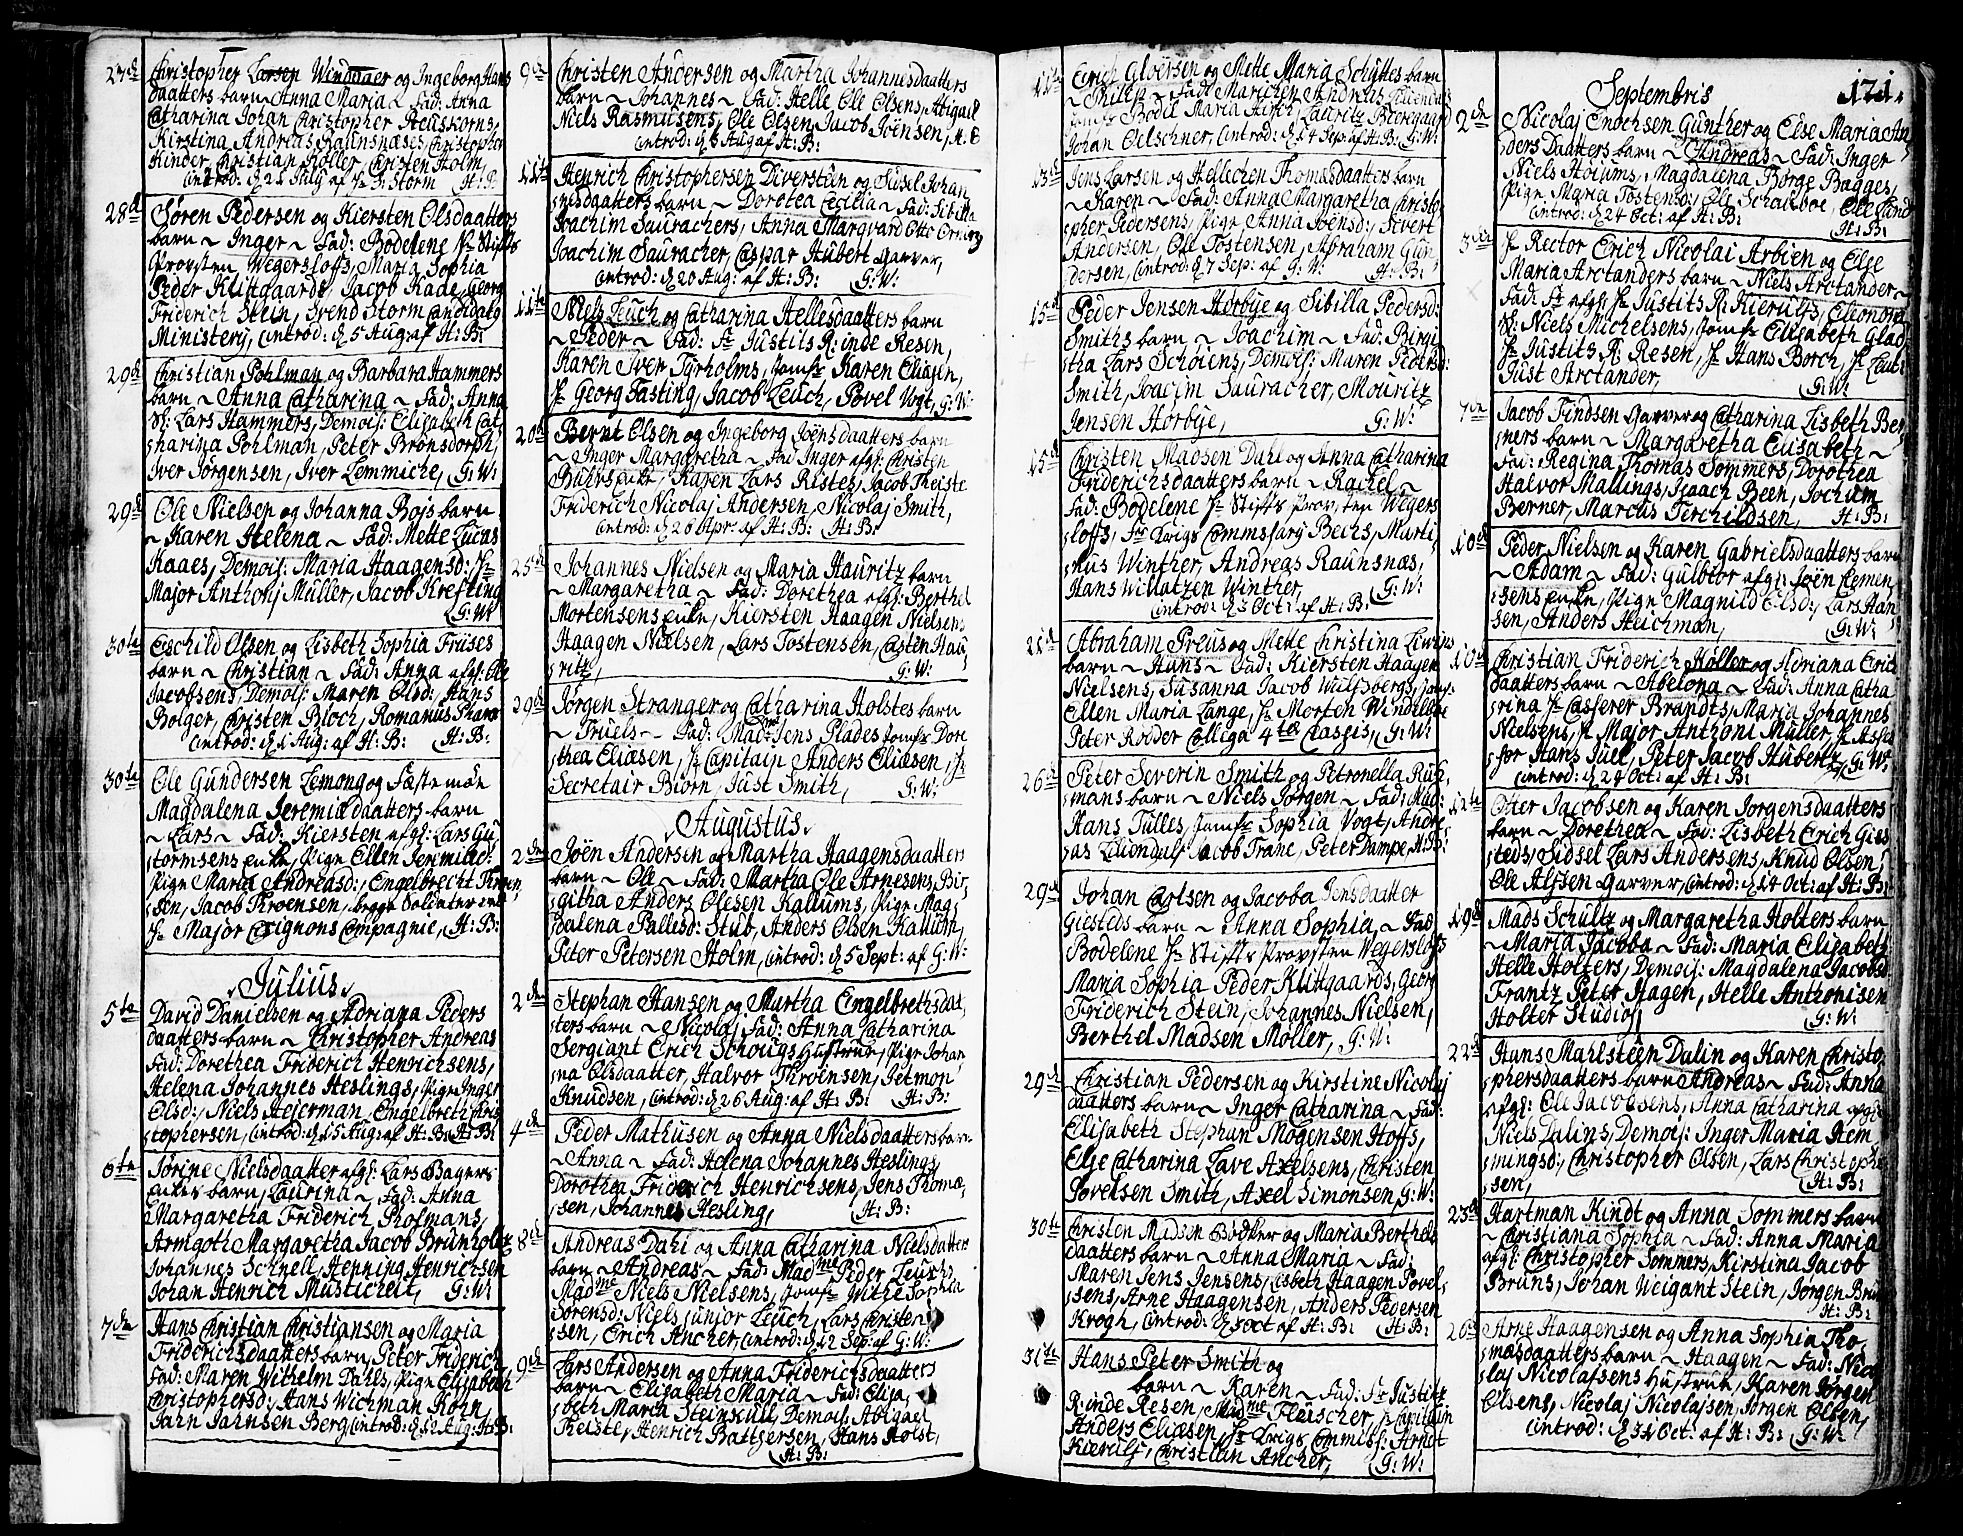 27d Christopher Larsen Winddaer og Ingeborg Hans
daatters barn ~ Anna Maria ~ Fad: Anna
Catharina Johan Christopher
Kirstina Andreas Raunsnæses, Christopher
Kinder, Christian Köller, Christen Holm,
introd: d 21 Aug af Hr S: Storm H: B
28d Sören Pedersen og Kiersten Olsdaatters
barn ~ Inger ~ Fad: Bodelene Hr Stifts
Provsten Wegersloffs, Maria Sophia
Peder Klitgaards, Jacob Kaae, Georg
Friderich Stein, Svend Storm Candidatg
Ministerij, introd: d 5 Aug af H: B:
29d Christian Pohlman og Barbara Hammers
barn ~ Anna Catharina ~ Fad: Anna
Sl: Lars Hammers, Demois: Elisabeth Cat-
harina Pohlman, Peter Bronsdorph,
Iver Jörgensen, Iver Lemmiche, G: W:
29d Ole Nielsen og Johanna Bojs barn
~ Karen Helena ~ Fad: Mette Lucas
Kaaes, Demois: Maria Haagensd:, Hr
Major Anthoni Müller, Jacob Krefting
G: W:
30te Eschild Olsen og Lisbeth Sophia Friises
barn ~ Christian ~ Fad: Anna afgl: Ole
Jacobsens, Demois: Maren Olsd:, Hans
Bolger, Christen Bloch, Romanus
introd: d 1 Aug: af H: B: H: B:
30te Ole Gundersen Lemong og Fæste möe
Magdalena Jeremiædaatters barn
~ Lars ~ Fad: Kiersten afgl: Lars Gu
tormsens enke, Pige Ellen Jeremiæd:
Pige Maria Andreasd:, Engelbrecht Thron
sen, Jacob Throensen, begge Soldater ved
Hr Major Compagnie, H: B:
Julius
5te David Danielsen og Adriana Peders
daatters barn ~ Christopher Andreas
Fad: Dorethea Friderich Henrichsens,
Helena Johannes Heslings, Pige Inger
Olsd:, Niels Hejerman, Engelbreth Chris
tophersen, introd: d 15 Aug: af H: B: H: B:
6te Sörine Nielsdaatter afgl: Lars Bagers
Enkes barn, Laurina ~ Fad: Anna
Margaretha Friderich Hofmans,
Armgoth Margaretha Jacob Brunholtz
Johannes Schnell, Henning Henrichsen
Johan Henrich Musticheit, G: W:
7de Hans Christian Christiansen og Maria
Friderichsdaatters barn, Peter Friderich,
Fad: Maren Wilhelm Dahls, Pige Elisabeth
Christophersd:, Hans Wichman Korn,
Jahn Jahnsen Berg, introd: d 12 Aug: H: B:
9de Christen Andersen og Martha Johannesdaatters
barn ~ Johannes ~ Fad: Helle Ole Olsens, Abigael
Niels Rasmussens, Ole Olsen, Jacob Joënsen, H: B
introd: d 8 Aug af H: B:
11te Henrich Christophersen Diversteen og Sidsel Johan
nisdaatters barn ~ Dorotea Cecilia ~ Fad: Sibilla
Joachim Saurachers, Anna Margvard Otto
Joachim Sauracher, Caspar Hubert Garver,
introd: d 20 Aug: af H: B: G: W:
11te Niels Leuch og Catharina Hellesdaatters barn
~ Peder ~ Fad: Fr Justits R: inde Resen,
Karen Iver Tyrholms, Jomfr Karen Eliæsen,
Hr Georg Fasting, Jacob Leuch, Povel Vogt, G: W:
20de Bernt Olsen og Ingeborg Joënsdaatters barn
~ Inger Margaretha ~ Fad Inger afgl: Christen
Buhrs enke, Karen Lars Ristes, Jacob Theiste
Friderich Nicolaj Andersen, Nicolaj Smith,
introd: d 26 af H: B: H: B:
25de Johannes Nielsen og Maria Hauritz barn
~ Margaretha ~ Fad: Dorethea afgl: Berthel
Mortensens enke, Kiersten Haagen Nielsens
Haagen Nielsen, Lars Tostensen, Casten Hau
ritz, G: W:
29de Jörgen Stranger og Catharina Holstes barn
~ Truels ~ Fad: Madme Jens Plades Jomfr Doro
thea Eliæsen, Hr Capitain Anders Eliæsen, Hr
Secretair Biörn, Just Smith, G: W:
Augustus
2den Joën Andersen og Martha Haagensdaatters
barn ~ Ole ~ Fad: Martha Ole Arnesens, Bir
githa Anders Olesen Kallums, Pige Mag
dalena Pallesd: Stub, Anders Olsen Kallum,
Peter Petersen Holm, introd: d 5 Sept: af G: W:
2den Stephan Hansen og Martha Engelbrethsdaa
ters barn ~ Nicolaj Fad: Anna Catharina
Sergiant Erich Schougs Hustrue, Pige Johan
na Olsdaatter, Halvor Throensen, Jetmon
Knudsen, introd: d 26 Aug: af H: B: H: B:
4de Peder Mathiesen og Anna Nielsdaatters barn
~ Anna ~ Fad: Helena Johannes Heslings
Dorothea Friderich Henrichsens, Jens Thomæ
sen, Johannes Hesling, H: B:
8de Andreas Dahl og Anna Catharina Nielsdatters
barn ~ Andreas ~ Fad: Madme Peder Leuchs
Madme Niels Nielsens, Jomfr Withe Sophia
Sörensd: Niels junior Leuch, Lars Christen
sen, Erich Ancher, introd: d 12 Sep: af G: W:
9de Lars Andersen og Anna Friderichsdaatters
barn ~ Elisabeth Maria ~ Fad: Elisa
beth Maria Steinkull, Demois Abigael
Theiste, Henrich Battgersen, Hans Holst,
H: B:
11te Erich Glöersen og Mette Maria Schüttes barn
~ Philip ~ Fad: Marichen Andreas Liliendals
Jomfr Bodil Maria Hirch, Lauritz Beergaard
Johan Oelschner, introd: d 14 Sep: af H: B: G: W:
13de Jens Larsen og Hellechen Thomæsdaatters barn
~ Karen ~ Fad: Anna Margaretha Christo
pher Pedersens, Pige Anna Joënsd:, Sivert
Andersen, Ole Tostensen, Abraham Gun
dersen, introd: d 7 Sep: af G: W: H: B:
15de Peder Jensen Horbye og Sibilla Pedersd:
Smiths barn ~ Joachim ~ Fad: Birgi
tha Lars Schöiens, Demois: Maren Pedersd:
Smith, Joacim Sauracher, Mouritz
Jensen Horbye, G: W:
15de Christen Madsen Dahl og Anna Catharina
Friderichsdaatters barn ~ Rachel ~
Fad: Bodelene Hr Stifts Provsten Wegers
loffs, Fr Krigs Commssarij Bechs, Marti
nus Winther, Andreas Raunsnæs,
Hans Willatzen Winther,
introd: d 3 Oct: af H: B: G: W:
21de Abraham Preus og Mette Christina Livins
barn ~ Hans ~ Fad: Kiersten Haagen
Nielsens, Susanna Jacob Wulfsbergs, Jomf:
Ellen Maria Lange, Hr Morten Windelbæ
Peter Rodder Collega 4tæ Classis, G: W:
26de Peter Severin Smith og Petronella Ruh
mans barn ~ Niels Jörgen ~ Fad: Mad:
Hans Tulles, Jomfr Sophia Vogt, Andre
as Liliendal, Jacob Trane, Peter Dampe, H: B:
29de Johan Carlsen og Jacoba Jensdaatter
Giesteds barn ~ Anna Sophia, ~ Fad:
Bodelene Hr Stifts Provsten Wegersloffs
Maria Sophia Peder Klitgaards, Georg
Friderich Stein, Johannes Nielsen,
Berthel Madsen Möller, G: W:
29de Christian Pedersen og Kirstine Nicolaj
daatters barn ~ Inger Catharina ~ Fad:
Elisabeth Stephan Mogensen Hoffs,
Else Catharina Lave Axelsens, Christen
Sörensen Smith, Axel Simonsen, G: W:
30te Christen Madsen Bödker og Maria Berthels
daatters barn ~ Anna Maria ~ Fad:
Maren Jens Jensens, Lisbeth Haagen Povel
sens, Arne Haagensen, Anders Pedersen
Krogh, introd: d 5 Oct af H: B: H: B:
31te Hans Peter Smith og
barn ~ Karen ~ Fad: Fr Justitz
R: inde Resen, Madme Fleischer, Hr Capitain
Anders Eliæsen, Hr Krigs Commiss: Arndt
Kierulf, Christian Ancher, G: W:
171.
Septembris
2den Nicolaj Enochsen Günther og Else Maria An
ders Daatters barn ~ Andreas ~ Fad: Inger
Niels Hoiums, Magdalena Börge Bagges,
Pige Maria Tostensd:, Ole Schalleboe, Ole Land
introd: d 24 Oct: af H: B: H: B:
3die Hr Rector Erich Nicolai Arbien og Else
Maria Arctanders barn ~ Niels Arctander ~
Fad: Fr afgl: Hr Justits R: Kierulfs, Eleonora
Sl: Niels Michelsens, Jomfr Elisabeth Glad
Hr Justits R: Resen, Hr Hans Borch, Hr Leut:
Just Arctander, G: W:
7de Jacob Findsen Garver og Catharina Lisbeth Ber
ners barn ~ Margaretha Elisabeth ~
Fad: Regina Thomas Sommers, Dorothea
Halvor Mallings, Isaach Been, Jochum
Berner, Marcus Terchildsen, H: B:
10de Peder Nielsen og Karen Gabrielsdaatters barn
~ Adam ~ Fad: Gulbior afgl: Joën Clemen
sens enke, Pige Magnild Olsd:, Lars Han
sen, Anders Heichman, G: W:
10de Christian Friderich Höller og Adriana Erics
daatters barn ~ Abelona ~ Fad: Anna Catha
rina Hr Casserer Brandts, Maria Johannes
Nielsens, Hr Major Anthoni Müller, Hr Asses
sor Hans Juel, Peter Jacob Hubertz,
introd: d 24 Oct: af H: B: G: W:
12te Oder Jacobsen og Karen Jörgensdaatters
barn ~ Dorethea ~ Fad: Lisbeth Erich Gies
teds, Sidsel Lars Andersens, Knud Olsen,
Ole Alfsen Garver, introd: d 14 Oct: af H: B:
19de Mads Schultz og Margaretha Holters barn
~ Maria Jacoba ~ Fad: Maria Elisabeth
Helle Holters, Demois: Magdalena Jacobsd
Frantz Peter Hagen, Helle Anthonisen
Holter Studios, G: W:
22de Hans Mahlsteen Dalin og Karen Christo
phersdaatters barn Andreas ~ Fad: Anna
afgl: Ole Jacobsens, Anna Catharina afgl:
Niels Dalins, Demois: Inger Maria Hem
mingsd:, Christopher Olsen, Lars Christophe
sen, H: B:
23de Hartman Kindt og Anna Sommers barn
~ Christiana Sophia ~ Fad: Anna Maria
afgl: Christopher Sommers, Kirstina Jacob
Bruns, Johan Weigant Stein, Jörgen Brun
H: B:
26de Arne Haagensen og Anna Sophia Tho
mæsdaatters barn ~ Haagen ~ Fad: Nico
laj Nicolajsens Hustrue, Karen Jörgen
Olsens, Nicolaj Nicolajsen, Jörgen Olsen,
introd: d 31 Oct: af H: B: G: W: